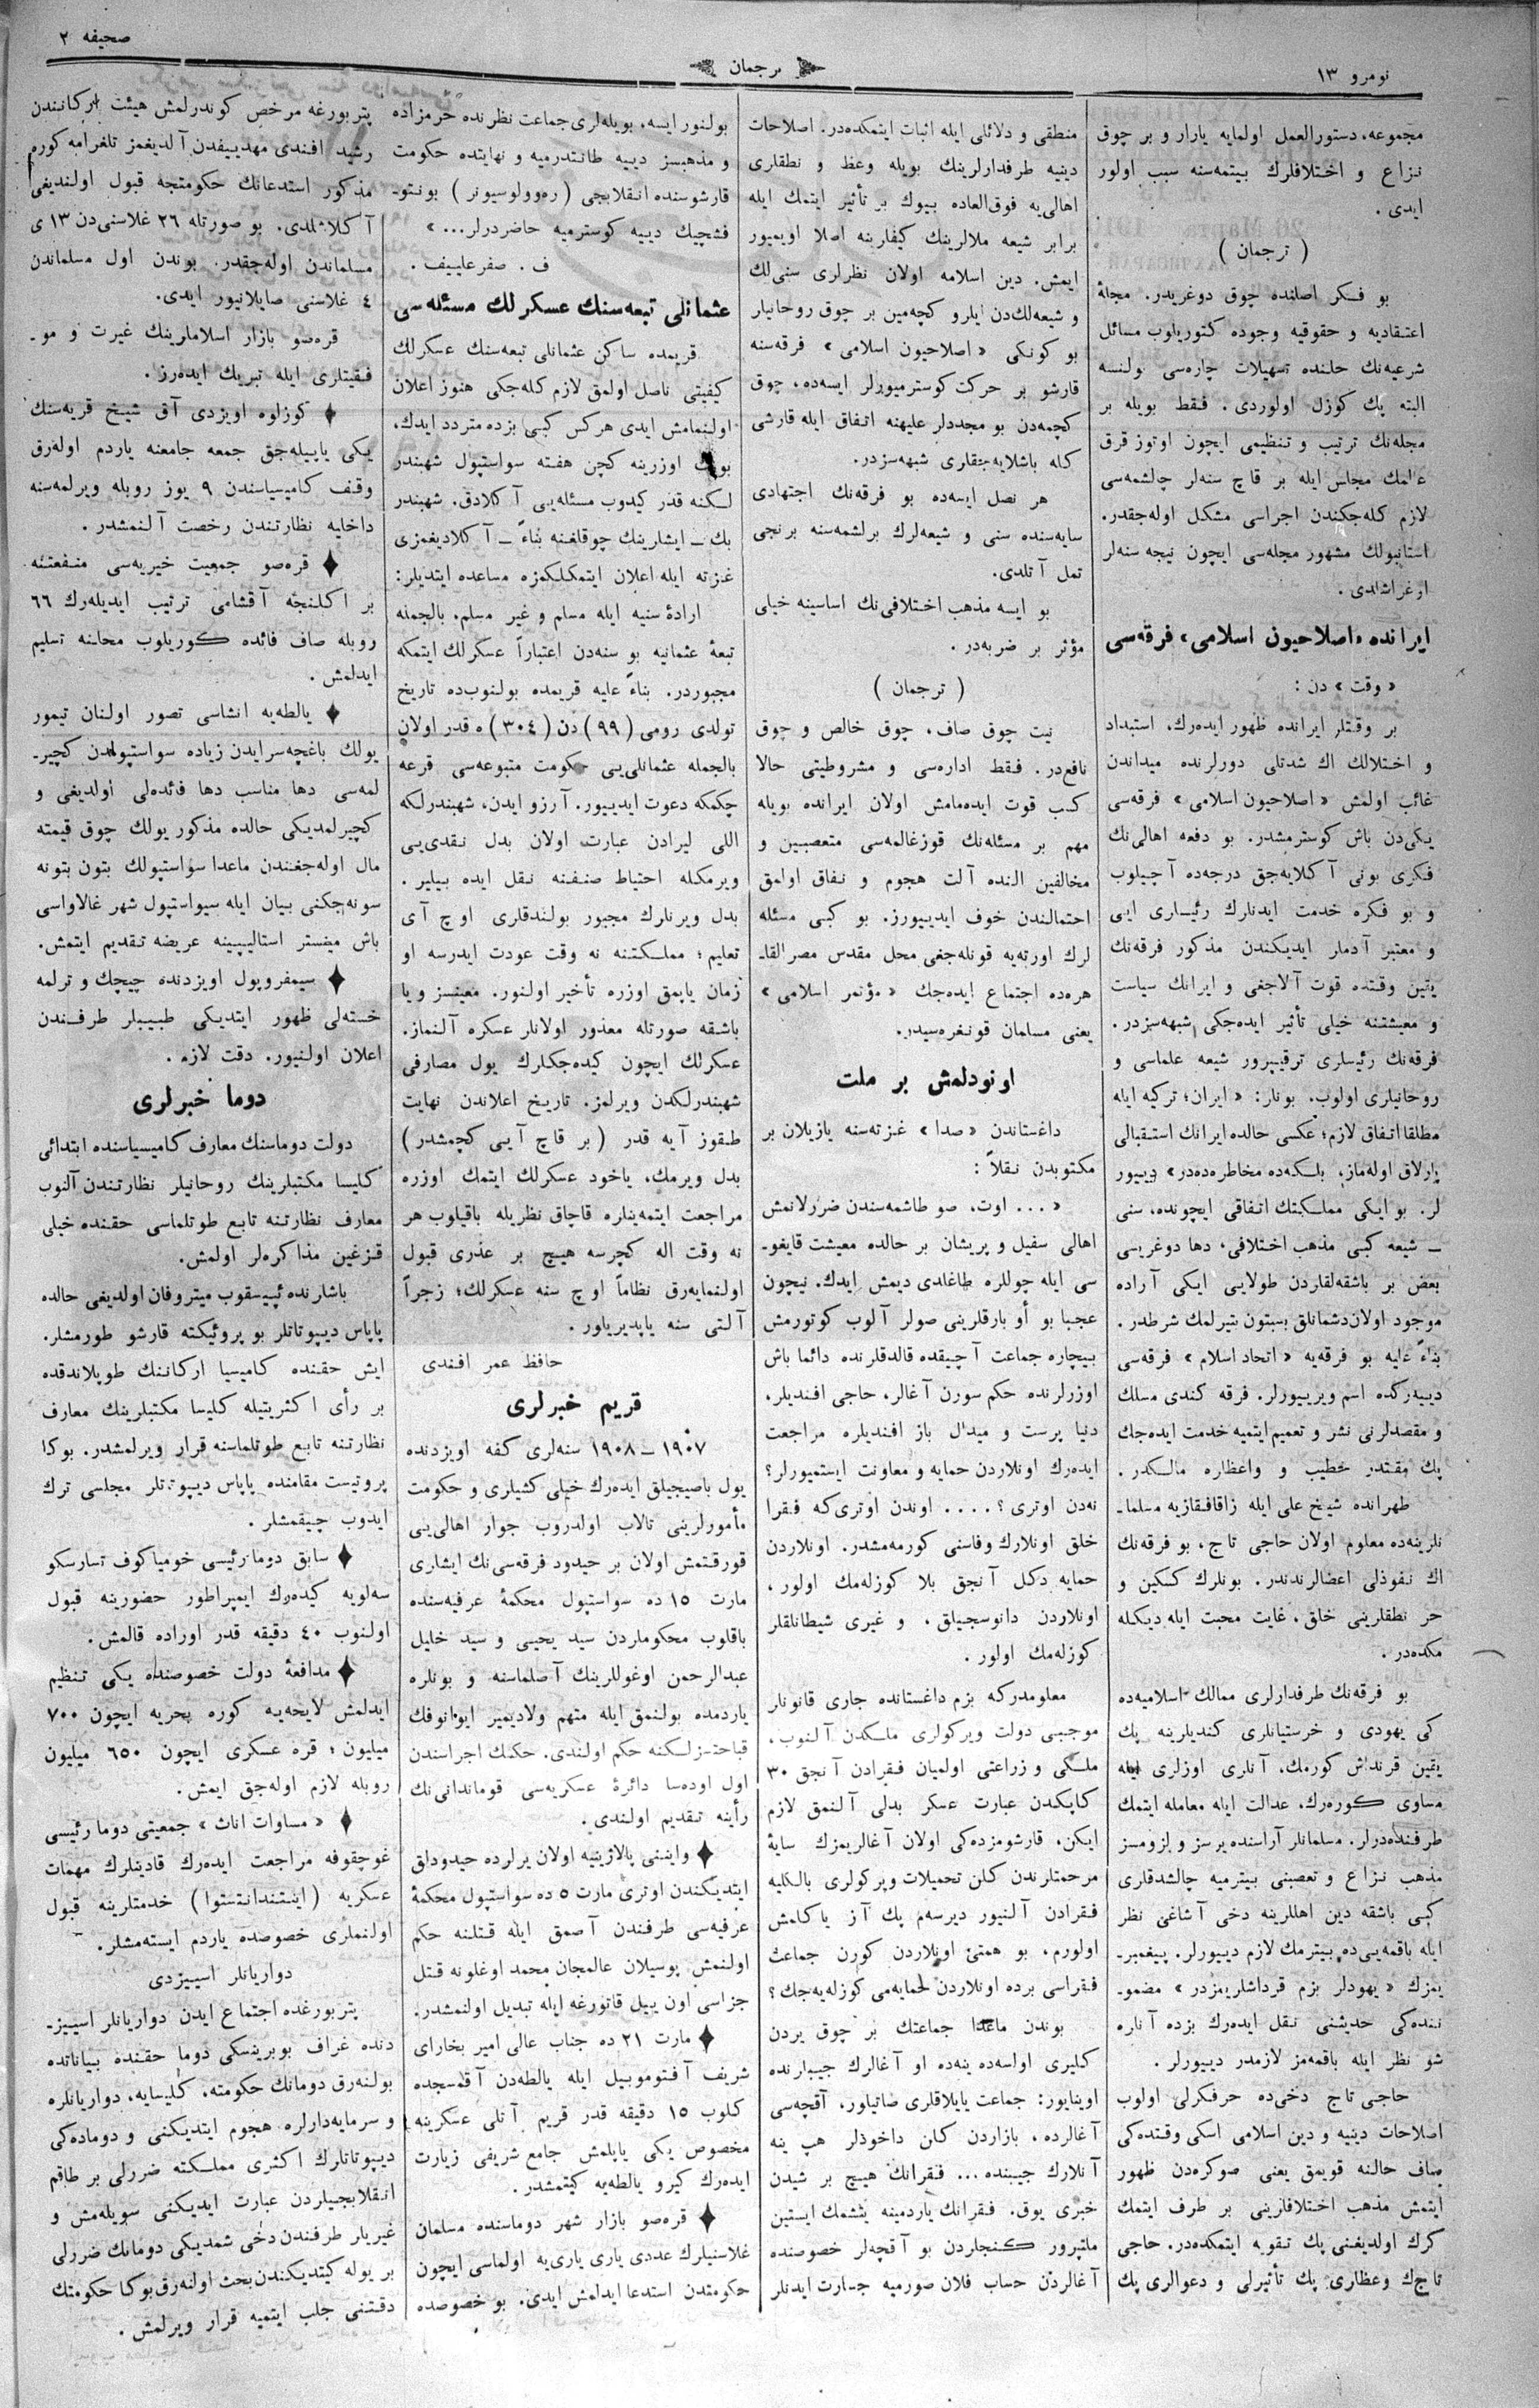 نومرو ١٣
ترجمان
صحیفه ٢
مجموعه، دستورالعمل اولمایه یارار و بر چوق
نزاع و اختلافلرك بیتمه‌سنه سبب اولور
ایدی .
( ترجمان )
بو فكر اصلنده چوق دوغریدر. مجلهٔ
اعتقادیه و حقوقیه وجوده كتوریلوب مسائل
شرعیه‌نك حلنده تسهیلات چاره‌سی بولنسه
البته پك كوزل اولوردی. فقط بویله بر
مجله‌نك ترتیب و تنظیمی ایچون اوتوز قرق
عالمك مجلس ایله بر قاچ سنه‌لر چالشمه‌سی
لازم كله‌جكندن اجراسی مشكل اوله‌جقدر.
استانبولك مشهور مجله‌سی ایچون نیجه سنه‌لر
اوغراشلدی .
ایرانده «اصلاحیون اسلامی» فرقه‌سی
« وقت » دن :
بر وقتلر ایرانده ظهور ایده‌رك، استبداد
و اختلالك اك شدتلی دورلرنده میداندن
غائب اولمش « اصلاحیون اسلامی » فرقه‌سی
یكی‌دن باش كوسترمشدر. بو دفعه اهالی‌نك
فكری بونی آكلایه‌جق درجه‌ده آچیلوب
و بو فكره خدمت ایدنلرك رئیسلری ایی
و معتبر آدملر ایدیكندن مذكور فرقه‌نك
یقین وقتده قوت آلاجغی و ایرانك سیاست
و معیشتنه خیلی تأثیر ایده‌جكی شبهه‌سزدر.
فرقه‌نك رئیسلری ترقیپرور شیعه علماسی و
روحانیلری اولوب. بونلر: « ایران؛ تركیه ایله
مطلقا اتفاق لازم؛ عكسی حالده ایرانك استقبالی
پارلاق اوله‌ماز، بلكه‌ده مخاطره‌ده‌در» دییور
لر. بو ایكی مملكتك اتفاقی ایچونده، سنی
ـ شیعه كبی مذهب اختلافی، دها دوغریسی
بعض بر باشقه‌لقلردن طولایی ایكی آراده
موجود اولان دشمانلق بسبتون بتیرلمك شرطدر.
بناءً علیه بو فرقه‌یه « اتحاد اسلام » فرقه‌سی
دییه‌ركده اسم ویرییورلر. فرقه كندی مسلك
و مقصدلرنی نشر و تعمیم ایتمیه خدمت ایده‌جك
پك مقتدر خطیب و واعظلره مالكدر .
طهرانده شیخ علی ایله زاقافقازیه مسلما ـ
نلرینه‌ده معلوم اولان حاجی تاج، بو فرقه‌نك
اك نفوذلی اعضالرندندر. بونلرك كسكین و
حر نطقلرینی خلق، غایت محبت ایله دیكله
مكده‌در .
بو فرقه‌نك طرفدارلری ممالك اسلامیه‌ده
كی یهودی و خرستیانلری كندیلرینه پك
یقین قرنداش كورمك، آنلری اوزلری ایله
مساوی كوره‌رك، عدالت ایله معامله ایتمك
طرفنده‌درلر. مسلمانلر آراسنده یرسز و لزومسز
مذهب نزاع و تعصبنی بیترمیه چالشدقلری
كبی باشقه دین اهللرینه دخی آشاغی نظر
ایله باقمه‌یی‌ده بیترمك لازم دییورلر. پیغمبر ـ
یمزك « یهودلر بزم قرداشلریمزدر » مضمو ـ
ننده‌كی حدیثنی نقل ایده‌رك بزده آنلره
شو نظر ایله باقمه‌مز لازمدر دییورلر .
حاجی تاج دخی‌ده حرفكرلی اولوب
اصلاحات دینیه و دین اسلامی اسكی وقتده‌كی
صاف حالنه قویمق یعنی صوكره‌دن ظهور
ایتمش مذهب اختلافلرینی بر طرف ایتمك
كرك اولدیغنی پك تقویه ایتمكده‌در. حاجی
تاج‌ك وعظلری پك تأثیرلی و دعوالری پك
منطقی و دلائلی ایله اثبات ایتمكده‌در. اصلاحات
دینیه طرفدارلرینك بویله وعظ و نطقلری
اهالی‌یه فوق‌العاده بیوك بر تأثیر ایتمك ایله
برابر شیعه ملالرینك كیفلرینه اصلا اویمیور
ایمش. دین اسلامه اولان نظرلری سنی‌لك
و شیعه‌لك‌دن ایلرو كچه‌مین بر چوق روحانیلر
بو كونكی « اصلاحیون اسلامی » فرقه‌سنه
قارشو بر حركت كوسترمیورلر ایسه‌ده، چوق
كچمه‌دن بو مجددلر علیهنه اتفاق ایله قارشی
كله باشلایه‌جقلری شبهه‌سزدر.
هر نصل ایسه‌ده بو فرقه‌نك اجتهادی
سایه‌سنده سنی و شیعه‌لرك برلشمه‌سنه برنجی
تمل آتلدی.
بو ایسه مذهب اختلافی‌نك اساسینه خیلی
مؤثر بر ضربه‌در .
( ترجمان )
نیت چوق صاف، چوق خالص و چوق
نافع‌در. فقط اداره‌سی و مشروطیتی حالا
كسب قوت ایده‌مامش اولان ایرانده بویله
مهم بر مسئله‌نك قوزغالمه‌سی متعصبین و
مخالفین النده آلت هجوم و نفاق اولمق
احتمالندن خوف ایدییورز. بو كبی مسئله
لرك اورته‌یه قونله‌جغی محل مقدس مصر القا ـ
هره‌ده اجتماع ایده‌جك « مؤتمر اسلامی »
یعنی مسلمان قونغره‌سیدر.
اونودلمش بر ملت
داغستاندن « صدا » غزته‌سنه یازیلان بر
مكتوبدن نقلاً :
« ... اوت، صو طاشمه‌سندن ضررلانمش
اهالی سفیل و پریشان بر حالده معیشت قایغو ـ
سی ایله چوللره طاغلدی دیمش ایدك. نیچون
عجبا بو أو بارقلرینی صولر آلوب كوتورمش
بیچاره جماعت آچیقده قالدقلرنده دائما باش
اوزرلرنده حكم سورن آغالر، حاجی افندیلر،
دنیا پرست و میدال باز افندیلره مراجعت
ایده‌رك اونلاردن حمایه و معاونت ایستمیورلر؟
نه‌دن اوتری ؟ .... اوندن اوتری‌كه فقرا
خلق اونلارك وفاسنی كورمه‌مشدر. اونلاردن
حمایه دكل آنجق بلا كوزله‌مك اولور،
اونلاردن دانوسجیلق . و غیری شیطانلقلر
كوزله‌مك اولور .
معلومدركه بزم داغستانده جاری قانونلر
موجبی دولت ویركولری ملكدن آلنوب،
ملكی و زراعتی اولمیان فقرادن آنجق ٣٠
كاپكدن عبارت عسكر بدلی آلنمق لازم
ایكن، قارشومزده‌كی اولان آغالریمزك سایهٔ
مرحمتلرندن كلن تحمیلات ویركولری بالكلیه
فقرادن آلنیور دیرسه‌م پك آز یاكلمش
اولورم، بو همتی اونلاردن كورن جماعت
فقراسی برده اونلاردن حمایه‌می كوزله‌یه‌جك؟
بوندن ماعدا جماعتك بر چوق یردن
كلیری اولسه‌ده ینه‌ده او آغالرك جیبلرنده
اوینایور: جماعت یایلاقلری صاتیلور، آقچه‌سی
آغالرده، بازاردن كلن داخوذلر هپ ینه
آنلارك جیبنده ... فقرانك هیچ بر شیدن
خبری یوق. فقرانك یاردمینه یتشمك ایستین
ملتپرور كنجلردن بو آقچه‌لر خصوصنده
آغالردن حساب فلان صورمیه جسارت ایدنلر
بولنور ایسه، بویله‌لری جماعت نظرنده حرمزاده
و مذهبسز دییه طانتدرمیه و نهایتده حكومت
قارشوسنده انقلابچی ( ره‌وولوسیونر ) بونتو ـ
فشچیك دییه كوسترمیه حاضردرلر... »
ف. صفرعلییف .
عثمانلی تبعه‌سنك عسكرلك مسئله‌سی
قریمده ساكن عثمانلی تبعه‌سنك عسكرلك
كیفیتی ناصل اولمق لازم كله‌جكی هنوز اعلان
اولنمامش ایدی هركس كبی بزده متردد ایدك،
بونك اوزرینه كچن هفته سواستپول شهبندر
لكنه قدر كیدوب مسئله‌یی آكلادق. شهبندر
بك ـ ایشلرینك چوقلغنه بناءً ـ آكلادیغمزی
غزته ایله اعلان ایتمكلكمزه مساعده ایتدیلر:
ارادهٔ سنیه ایله مسلم و غیر مسلم، بالجمله
تبعهٔ عثمانیه بو سنه‌دن اعتباراً عسكرلك ایتمكه
مجبوردر. بناءً علیه قریمده بولنوب‌ده تاریخ
تولدی رومی ( ٩٩ ) دن ( ٣٠٤ ) ه قدر اولان
بالجمله عثمانلی‌یی حكومت متبوعه‌سی قرعه
چكمكه دعوت ایدییور. آرزو ایدن، شهبندرلكه
اللی لیرادن عبارت اولان بدل نقدی‌یی
ویرمكله احتیاط صنفنه نقل ایده بیلیر.
بدل ویرنلرك مجبور بولندقلری اوچ آی
تعلیم؛ مملكتنه نه وقت عودت ایدرسه او
زمان یاپمق اوزره تأخیر اولنور. معینسز ویا
باشقه صورتله معذور اولانلر عسكره آلنماز.
عسكرلك ایچون كیده‌جكلرك یول مصارفی
شهبندرلكدن ویرلمز. تاریخ اعلاندن نهایت
طقوز آیه قدر ( بر قاچ آیی كچمشدر )
بدل ویرمك، یاخود عسكرلك ایتمك اوزره
مراجعت ایتمه‌ینلره قاچاق نظریله باقیلوب هر
نه وقت اله كچرسه هیچ بر عذری قبول
اولنمایه‌رق نظاماً اوچ سنه عسكرلك؛ زجراً
آلتی سنه یاپدیریلور .
حافظ عمر افندی
قریم خبرلری
١٩٠٧ ـ ١٩٠٨ سنه‌لری كفه اویزدنده
یول باصیجیلق ایده‌رك خیلی كشیلری و حكومت
مأمورلرینی تالاب اولدروب جوار اهالی‌یی
قورقتمش اولان بر حیدود فرقه‌سی‌نك ایشلری
مارت ١٥ ده سواستپول محكمهٔ عرفیه‌سنده
باقلوب محكوملردن سید یحیی و سید خلیل
عبدالرحمن اوغوللرینك آصلماسنه و بونلره
یاردمده بولنمق ایله متهم ولادیمیر ایوانوفك
قباحتزلكنه حكم اولندی. حكمك اجراسندن
اول اوده‌سا دائرهٔ عسكریه‌سی قوماندانی‌نك
رأینه تقدیم اولندی.
♦ واینی پالاژینیه اولان یرلرده حیدوداق
ایتدیكندن اوتری مارت ٥ ده سواستپول محكمهٔ
عرفیه‌سی طرفندن آصمق ایله قتلنه حكم
اولنمش پوسیلان عالمجان محمد اوغلونه قتل
جزاسی اون ییل قاتورغه ایله تبدیل اولنمشدر.
♦ مارت ٢١ ده جناب عالی امیر بخارای
شریف آفتوموبیل ایله یالطه‌دن آقمسجده
كلوب ١٥ دقیقه قدر قریم آتلی عسكرینه
مخصوص یكی یاپلمش جامع شریفی زیارت
ایده‌رك كیرو یالطه‌یه كیتمشدر.
♦ قره‌صو بازار شهر دوماسنده مسلمان
غلاسنیلرك عددی یاری یاری‌یه اولماسی ایچون
حكومتدن استدعا ایدلمش ایدی. بو خصوصده
پتربورغه مرخص كوندرلمش هیئت اركانندن
رشید افندی مهدییفدن آلدیغمز تلغرامه كوره
مذكور استدعانك حكومتجه قبول اولندیغی
آكلاشلدی. بو صورتله ٢٦ غلاسنی‌دن ١٣ ی
مسلماندن اوله‌جقدر. بوندن اول مسلماندن
٤ غلاسنی صایلانیور ایدی.
قره‌صو بازار اسلاملرینك غیرت و مو ـ
فقیتلری ایله تبریك ایده‌رز.
♦ كوزلوه اویزدی آق شیخ قریه‌سنك
یكی یاپیله‌جق جمعه جامعنه یاردم اوله‌رق
وقف كامیسیاسندن ٩ یوز روبله ویرلمه‌سنه
داخلیه نظارتندن رخصت آلنمشدر.
♦ قره‌صو جمعیت خیریه‌سی منفعتنه
بر اكلنجه آقشامی ترتیب ایدیله‌رك ٦٦
روبله صاف فائده كوریلوب محلنه تسلیم
ایدلمش.
♦ یالطه‌یه انشاسی تصور اولنان تیمور
یولك باغچه‌سرایدن زیاده سواستپولدن كچیر ـ
لمه‌سی دها مناسب دها فائده‌لی اولدیغی و
كچیرلمدیكی حالده مذكور یولك چوق قیمته
مال اوله‌جغندن ماعدا سواستپولك بتون بتونه
سونه‌جكنی بیان ایله سیواستپول شهر غالاواسی
باش مینستر استالیپینه عریضه تقدیم ایتمش.
♦ سیمفروپول اویزدنده چیچك و ترلمه
خسته‌لی ظهور ایتدیكی طبیبلر طرفندن
اعلان اولنیور. دقت لازم.
دوما خبرلری
دولت دوماسنك معارف كامیسیاسنده ابتدائی
كلیسا مكتبلرینك روحانیلر نظارتندن آلنوب
معارف نظارتنه تابع طوتلماسی حقنده خیلی
قزغین مذاكره‌لر اولمش.
باشلرنده ئپیسقوب میتروفان اولدیغی حالده
پاپاس دیپوتاتلر بو پروئیكته قارشو طورمشلر.
ایش حقنده كامیسیا اركاننك طوپلاندقده
بر رأی اكثریتیله كلیسا مكتبلرینك معارف
نظارتنه تابع طوتلماسنه قرار ویرلمشدر. بوكا
پروتیست مقامنده پاپاس دیپوتاتلر مجلسی ترك
ایدوب چیقمشلر.
♦ سابق دوما رئیسی خومیاكوف تسارسكو
سه‌لویه كیده‌رك ایمپراطور حضورینه قبول
اولنوب ٤٠ دقیقه قدر اوراده قالمش.
♦ مدافعهٔ دولت خصوصنده یكی تنظیم
ایدلمش لایحه‌یه كوره بحریه ایچون ٧٠٠
میلیون؛ قره عسكری ایچون ٦٥٠ میلیون
روبله لازم اوله‌جق ایمش.
♦ « مساوات اناث » جمعیتی دوما رئیسی
غوچقوفه مراجعت ایده‌رك قادینلرك مهمات
عسكریه ( اینتندانتستوا ) خدمتلرینه قبول
اولنملری خصوصده یاردم ایسته‌مشلر.
دواریانلر اسییزدی
پتربورغده اجتماع ایدن دواریانلر اسییز ـ
دنده غراف بوبرینسكی دوما حقنده بیاناتده
بولنه‌رق دومانك حكومته، كلیسایه، دواریانلره
و سرمایه‌دارلره هجوم ایتدیكنی و دوماده‌كی
دیپوتاتلرك اكثری مملكته ضررلی بر طاقم
انقلابجیلردن عبارت ایدیكنی سویله‌مش و
غیریلر طرفندن دخی شمدیكی دومانك ضررلی
بر یوله كیتدیكندن بحث اولنه‌رق بوكا حكومتك
دقتنی جلب ایتمیه قرار ویرلمش.